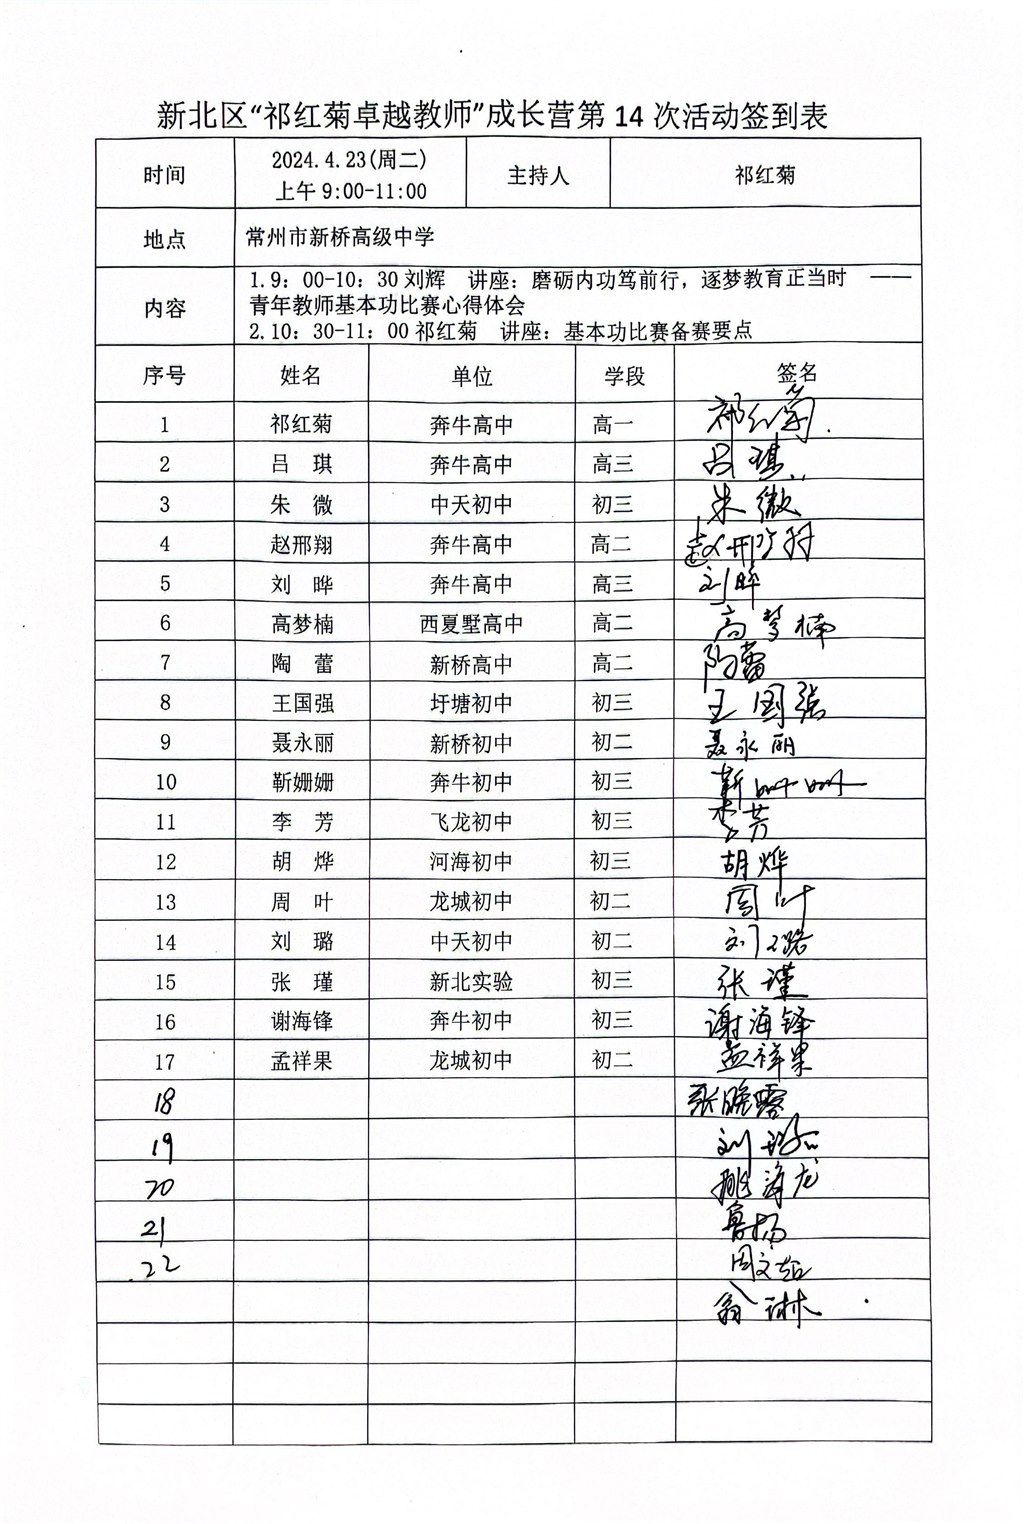 新北区“祁红菊卓越教师”成长营第 14 次活动签到表
时间 2024.4.23(周二) 上午 9:00-11:00 主持人 祁红菊
地点 常州市新桥高级中学
内容 1.9：00-10：30 刘辉 讲座：磨砺内功笃前行，逐梦教育正当时 ——
青年教师基本功比赛心得体会
2.10：30-11：00 祁红菊 讲座：基本功比赛备赛要点
序号 姓名 单位 学段 签名
1 祁红菊 奔牛高中 高一 祁红菊
2 吕 琪 奔牛高中 高三 吕琪
3 朱 微 中天初中 初三 朱微
4 赵邢翔 奔牛高中 高二 赵邢翔
5 刘 晔 奔牛高中 高三 刘晔
6 高梦楠 西夏墅高中 高二 高梦楠
7 陶 蕾 新桥高中 高二 陶蕾
8 王国强 圩塘初中 初三 王国强
9 聂永丽 新桥初中 初二 聂永丽
10 靳姗姗 奔牛初中 初三 靳姗姗
11 李 芳 飞龙初中 初三 李芳
12 胡 烨 河海初中 初三 胡烨
13 周 叶 龙城初中 初二 周叶
14 刘 璐 中天初中 初二 刘璐
15 张 瑾 新北实验 初三 张瑾
16 谢海锋 奔牛初中 初三 谢海锋
17 孟祥果 龙城初中 初二 孟祥果
18 张晓霞
19 刘
20 姚海龙
21 鲁杨
22 周文
翁琳